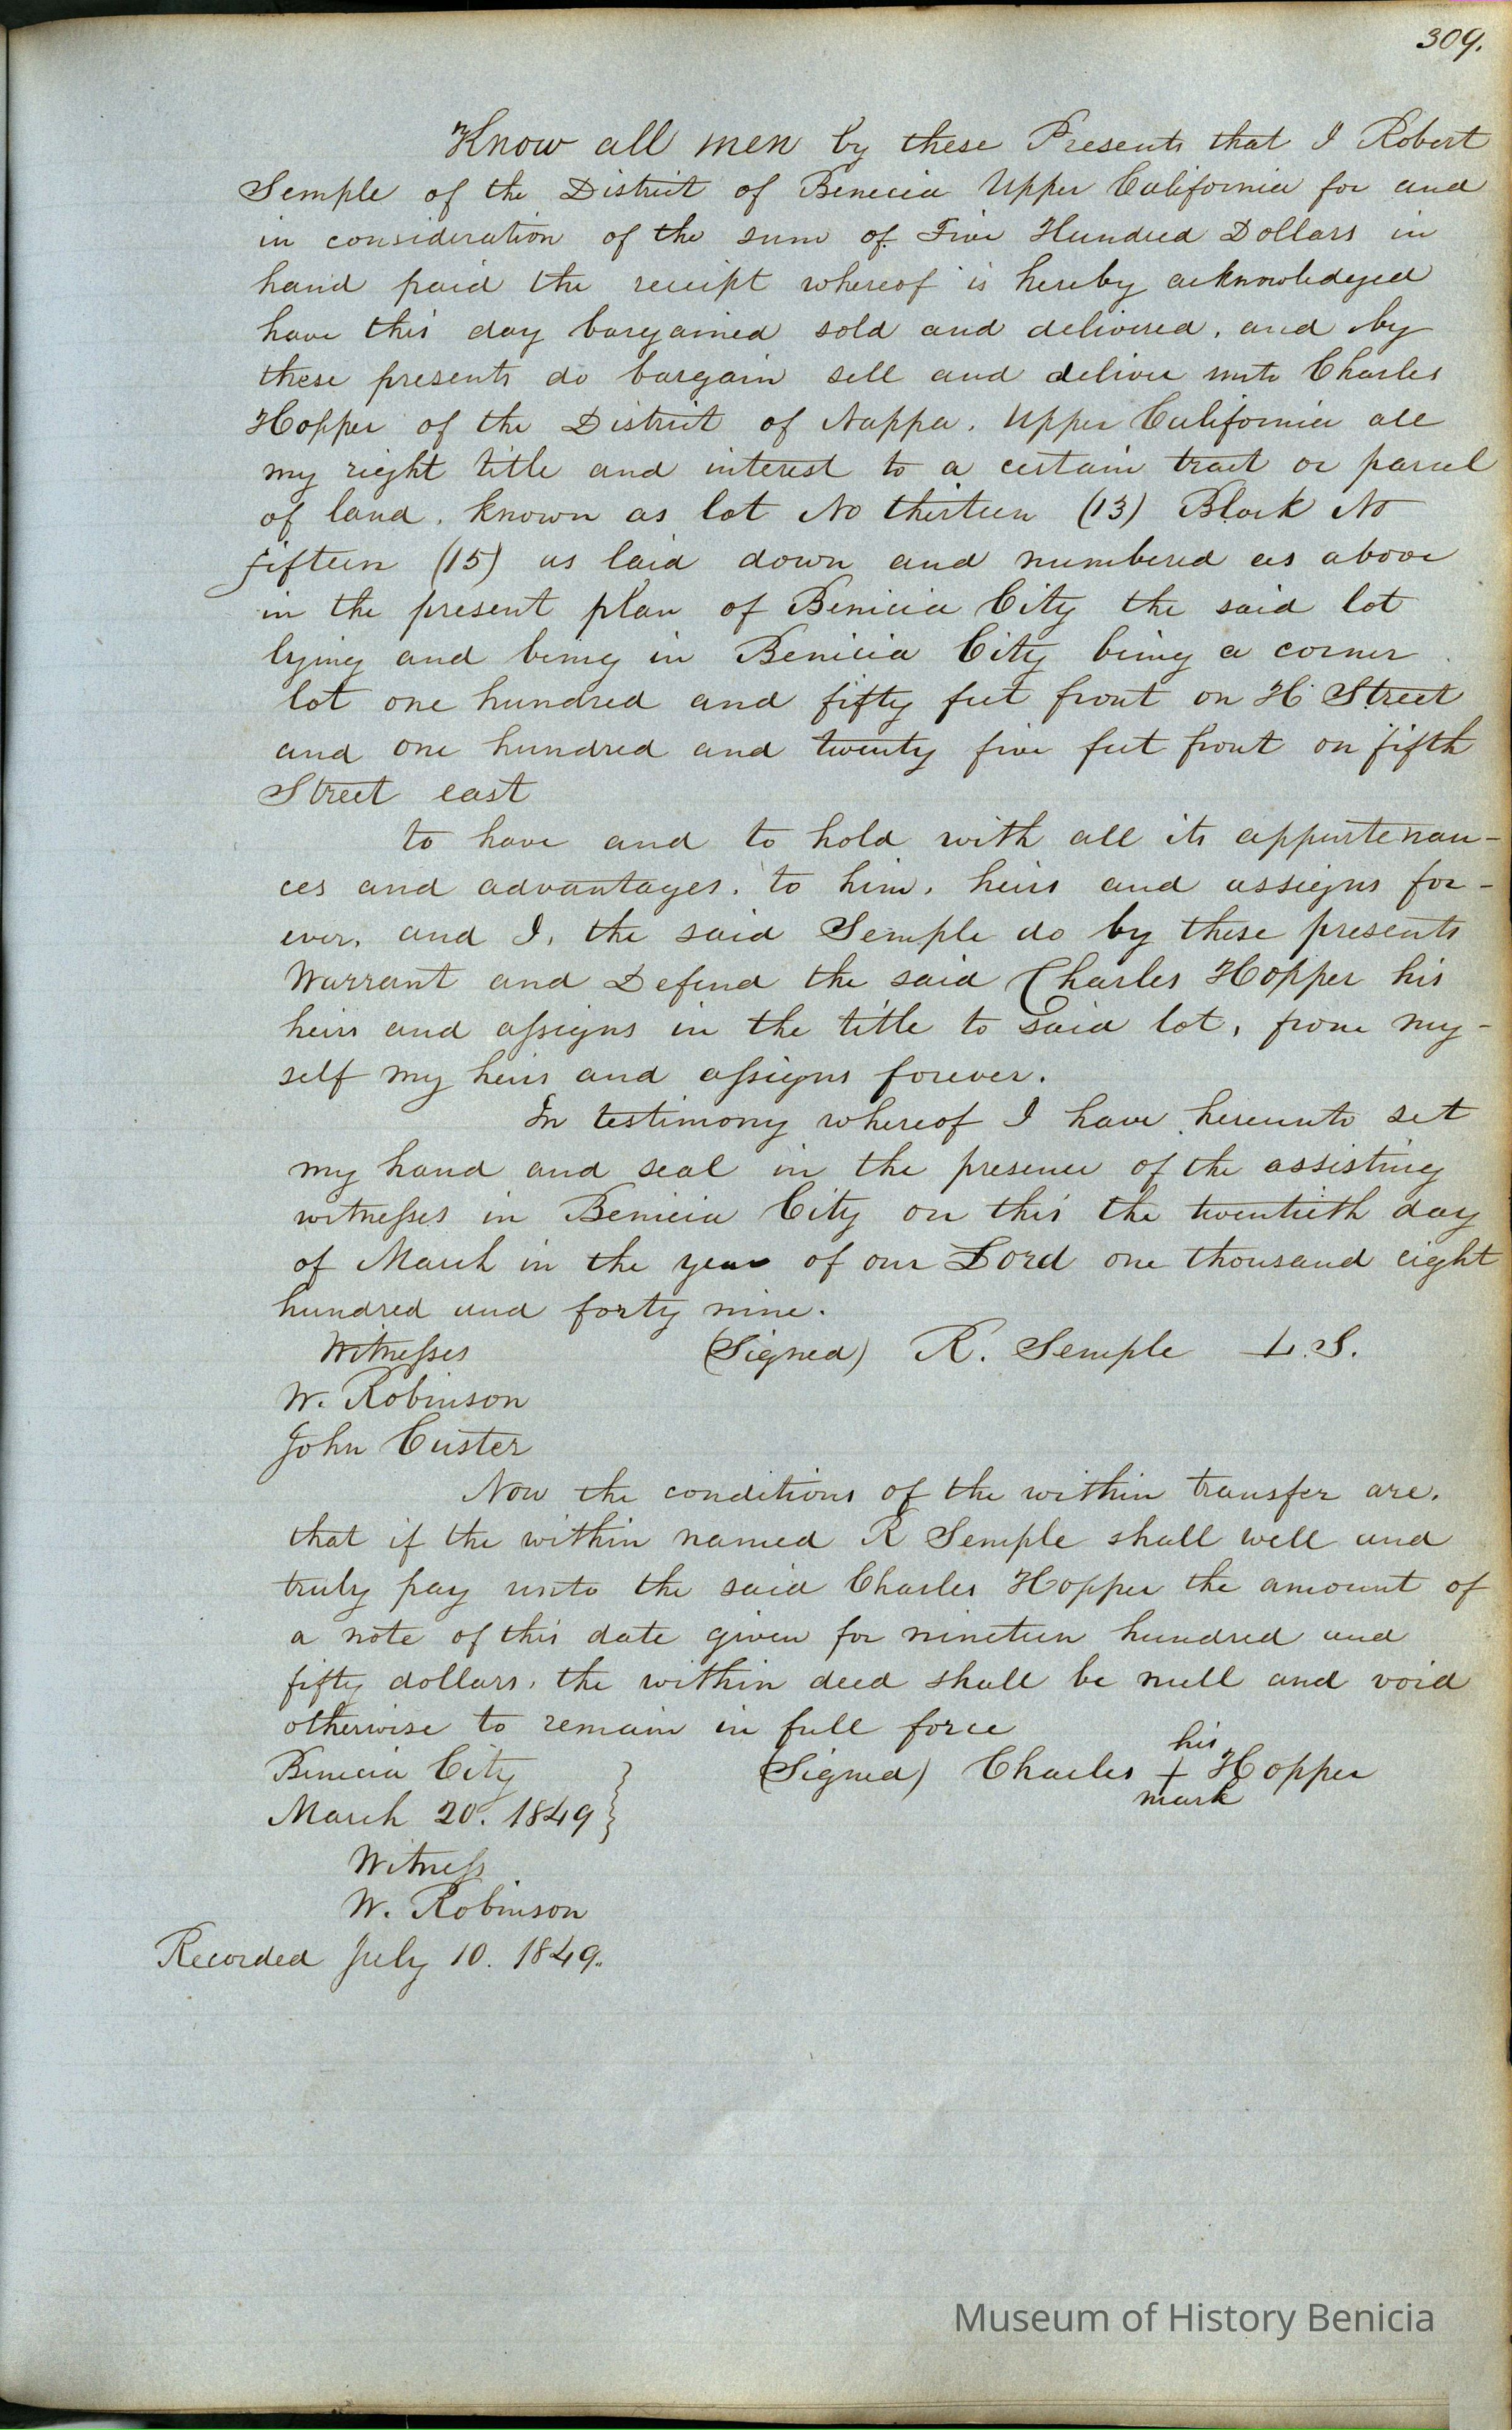 309.
Know all men by these Presents that I Robert
Semple of the District of Benicia Upper California for and
in consideration of the sum of Five Hundred Dollars in
hand paid the receipt whereof is hereby acknowledged
have this day bargained sold and delivered, and by
these presents do bargain sell and deliver unto Charles
Hopper of the District of Nappa. Upper California all
my right title and interest to a certain tract or parcel
of land, known as lot No thirteen (13) Block No
fifteen (15) as laid down and numbered as above
in the present plan of Benicia City the said lot
lying and being in Benicia City being a corner
lot one hundred and fifty feet front on H Street
and one hundred and twenty five feet front on fifth
Street east
to have and to hold with all its appurtenan-
ces and advantages, to him, heirs and assigns for-
ever, and I, the said Semple do by these presents
Warrant and Defend the said Charles Hopper his
heirs and assigns in the title to said lot, from my-
self my heirs and assigns forever.
In testimony whereof I have hereunto set
my hand and seal in the presence of the assisting
witnesses in Benicia City on this the twentieth day
of March in the year of our Lord one thousand eight
hundred and forty nine.
Witnesses (Signed) R. Semple L.S.
W. Robinson
John Custer
Now the conditions of the within transfer are,
that if the within named R Semple shall well and
truly pay unto the said Charles Hopper the amount of
a note of this date given for nineteen hundred and
fifty dollars, the within deed shall be null and void
otherwise to remain in full force
his
Benicia City } (Signed) Charles + Hopper
mark
March 20. 1849 }
Witness
W. Robinson
Recorded July 10. 1849.
Museum of History Benicia